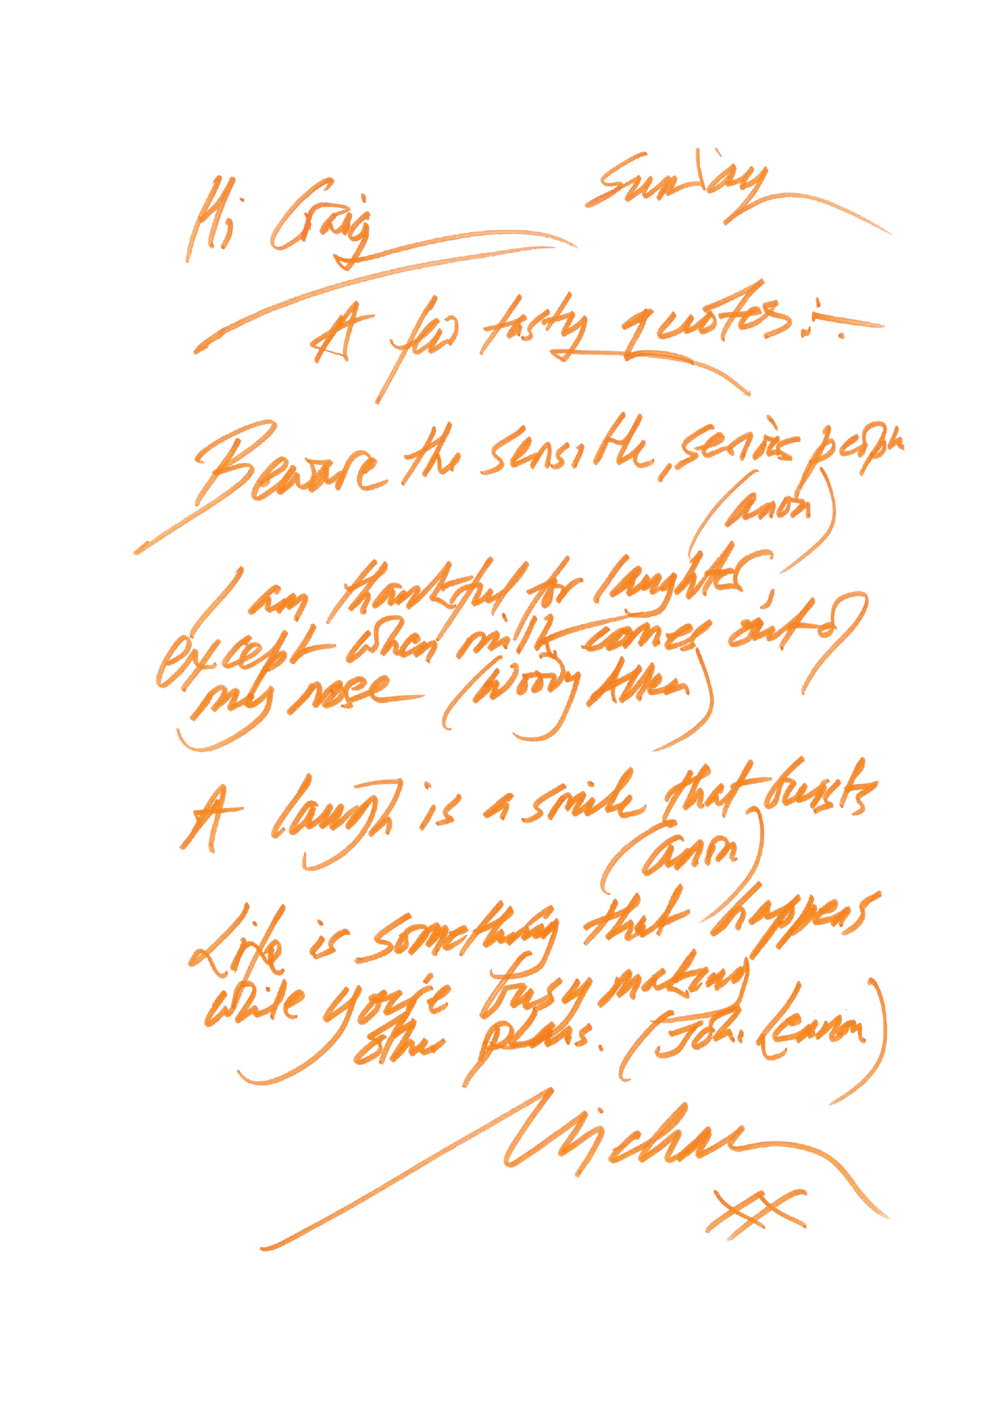 Sunday
Hi Craig
A few tasty quotes:-
Beware the sensible, serious people
(anon)
I am thankful for laughter,
except when milk comes out of
my nose (Woody Allen)
A laugh is a smile that bursts
(anon)
Life is something that happens
while you're busy making
other plans. (John Lennon)
Michael
XX